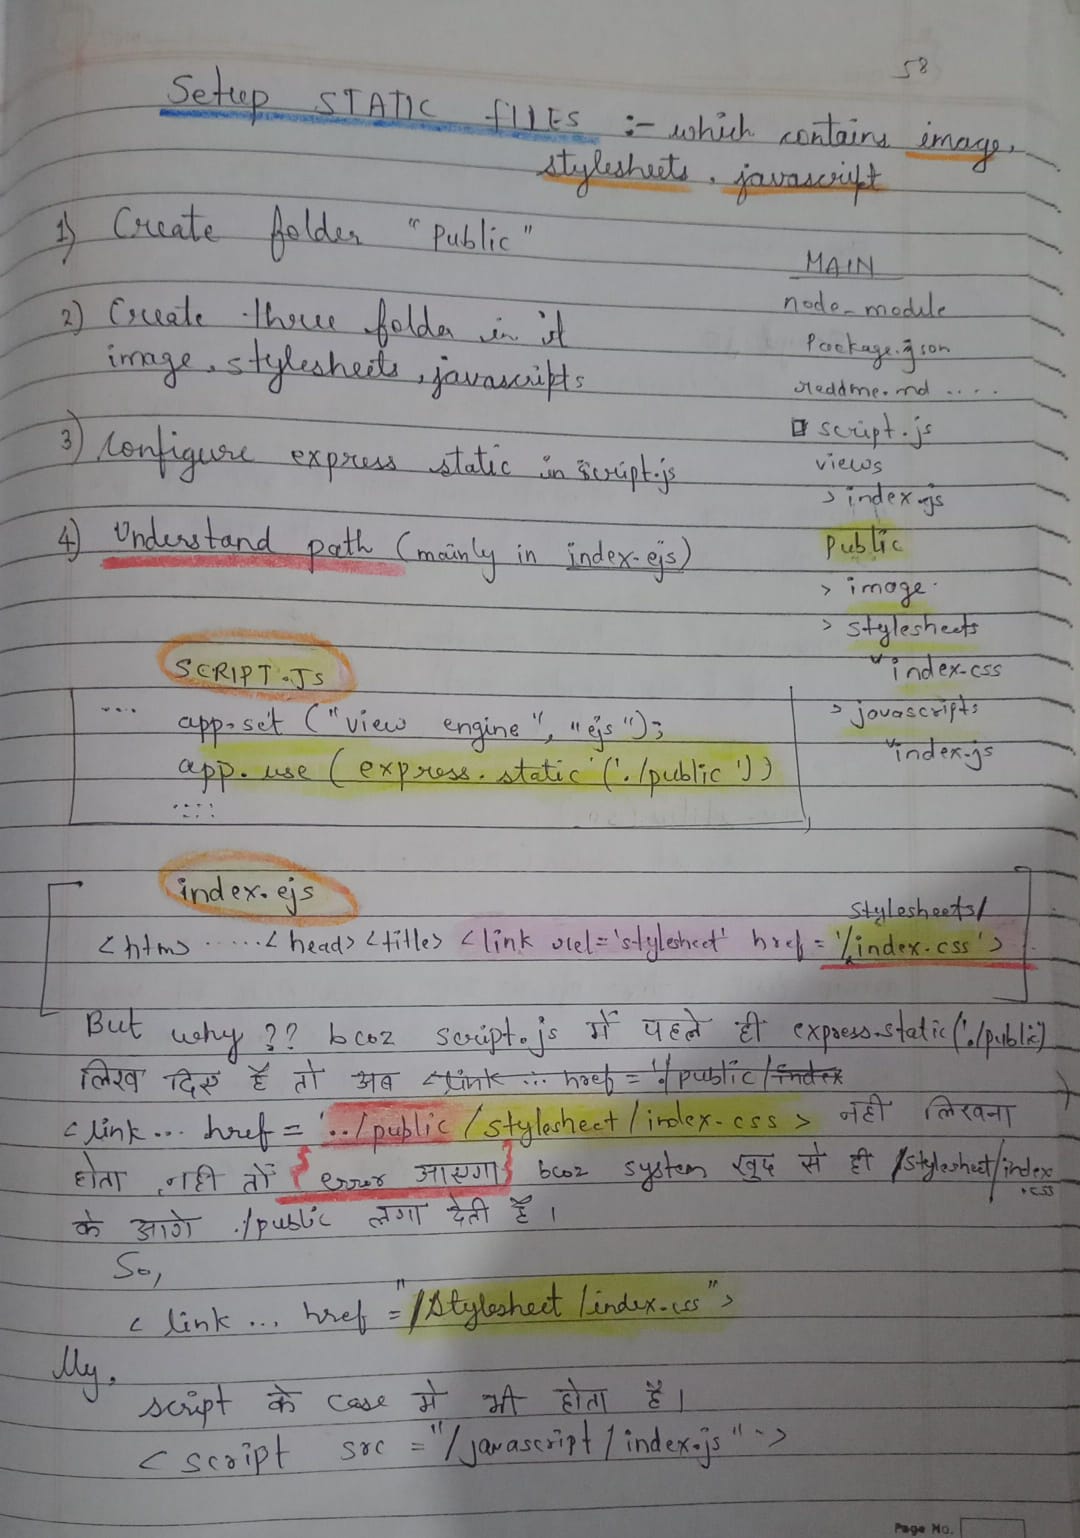 58
Setup STATIC fILES :- which contains image,
stylesheets, javascript
1) Create folder "Public"
2) Create three folder in it
image, stylesheets, javascripts
3) Configure express static in script.js
4) Understand path (mainly in index.ejs)
MAIN
node_module
Package.json
readme.md ....
script.js
views
> index.ejs
Public
> image
> stylesheets
index.css
> javascripts
index.js
SCRIPT.JS
....
app.set ("view engine", "ejs");
app.use (express.static('./public'))
index.ejs
stylesheets/
<htm> .....<head> <title> <link rel='stylesheet' href='/index.css'>
But why ?? bcoz script.js में पहले ही express.static('./public')
लिख दिए है तो अब <link ... href = './public/index
<link... href = '../public/stylesheet/index.css> नही लिखना
होता, नही तो {error आएगा} bcoz system खुद से ही /stylesheet/index
.css
के आगे ./public लगा देती है।
So,
<link ... href ="/stylesheet/index.css">
My,
script के case मे भी होता है।
<script src ="/javascript/index.js" ->
Page No.